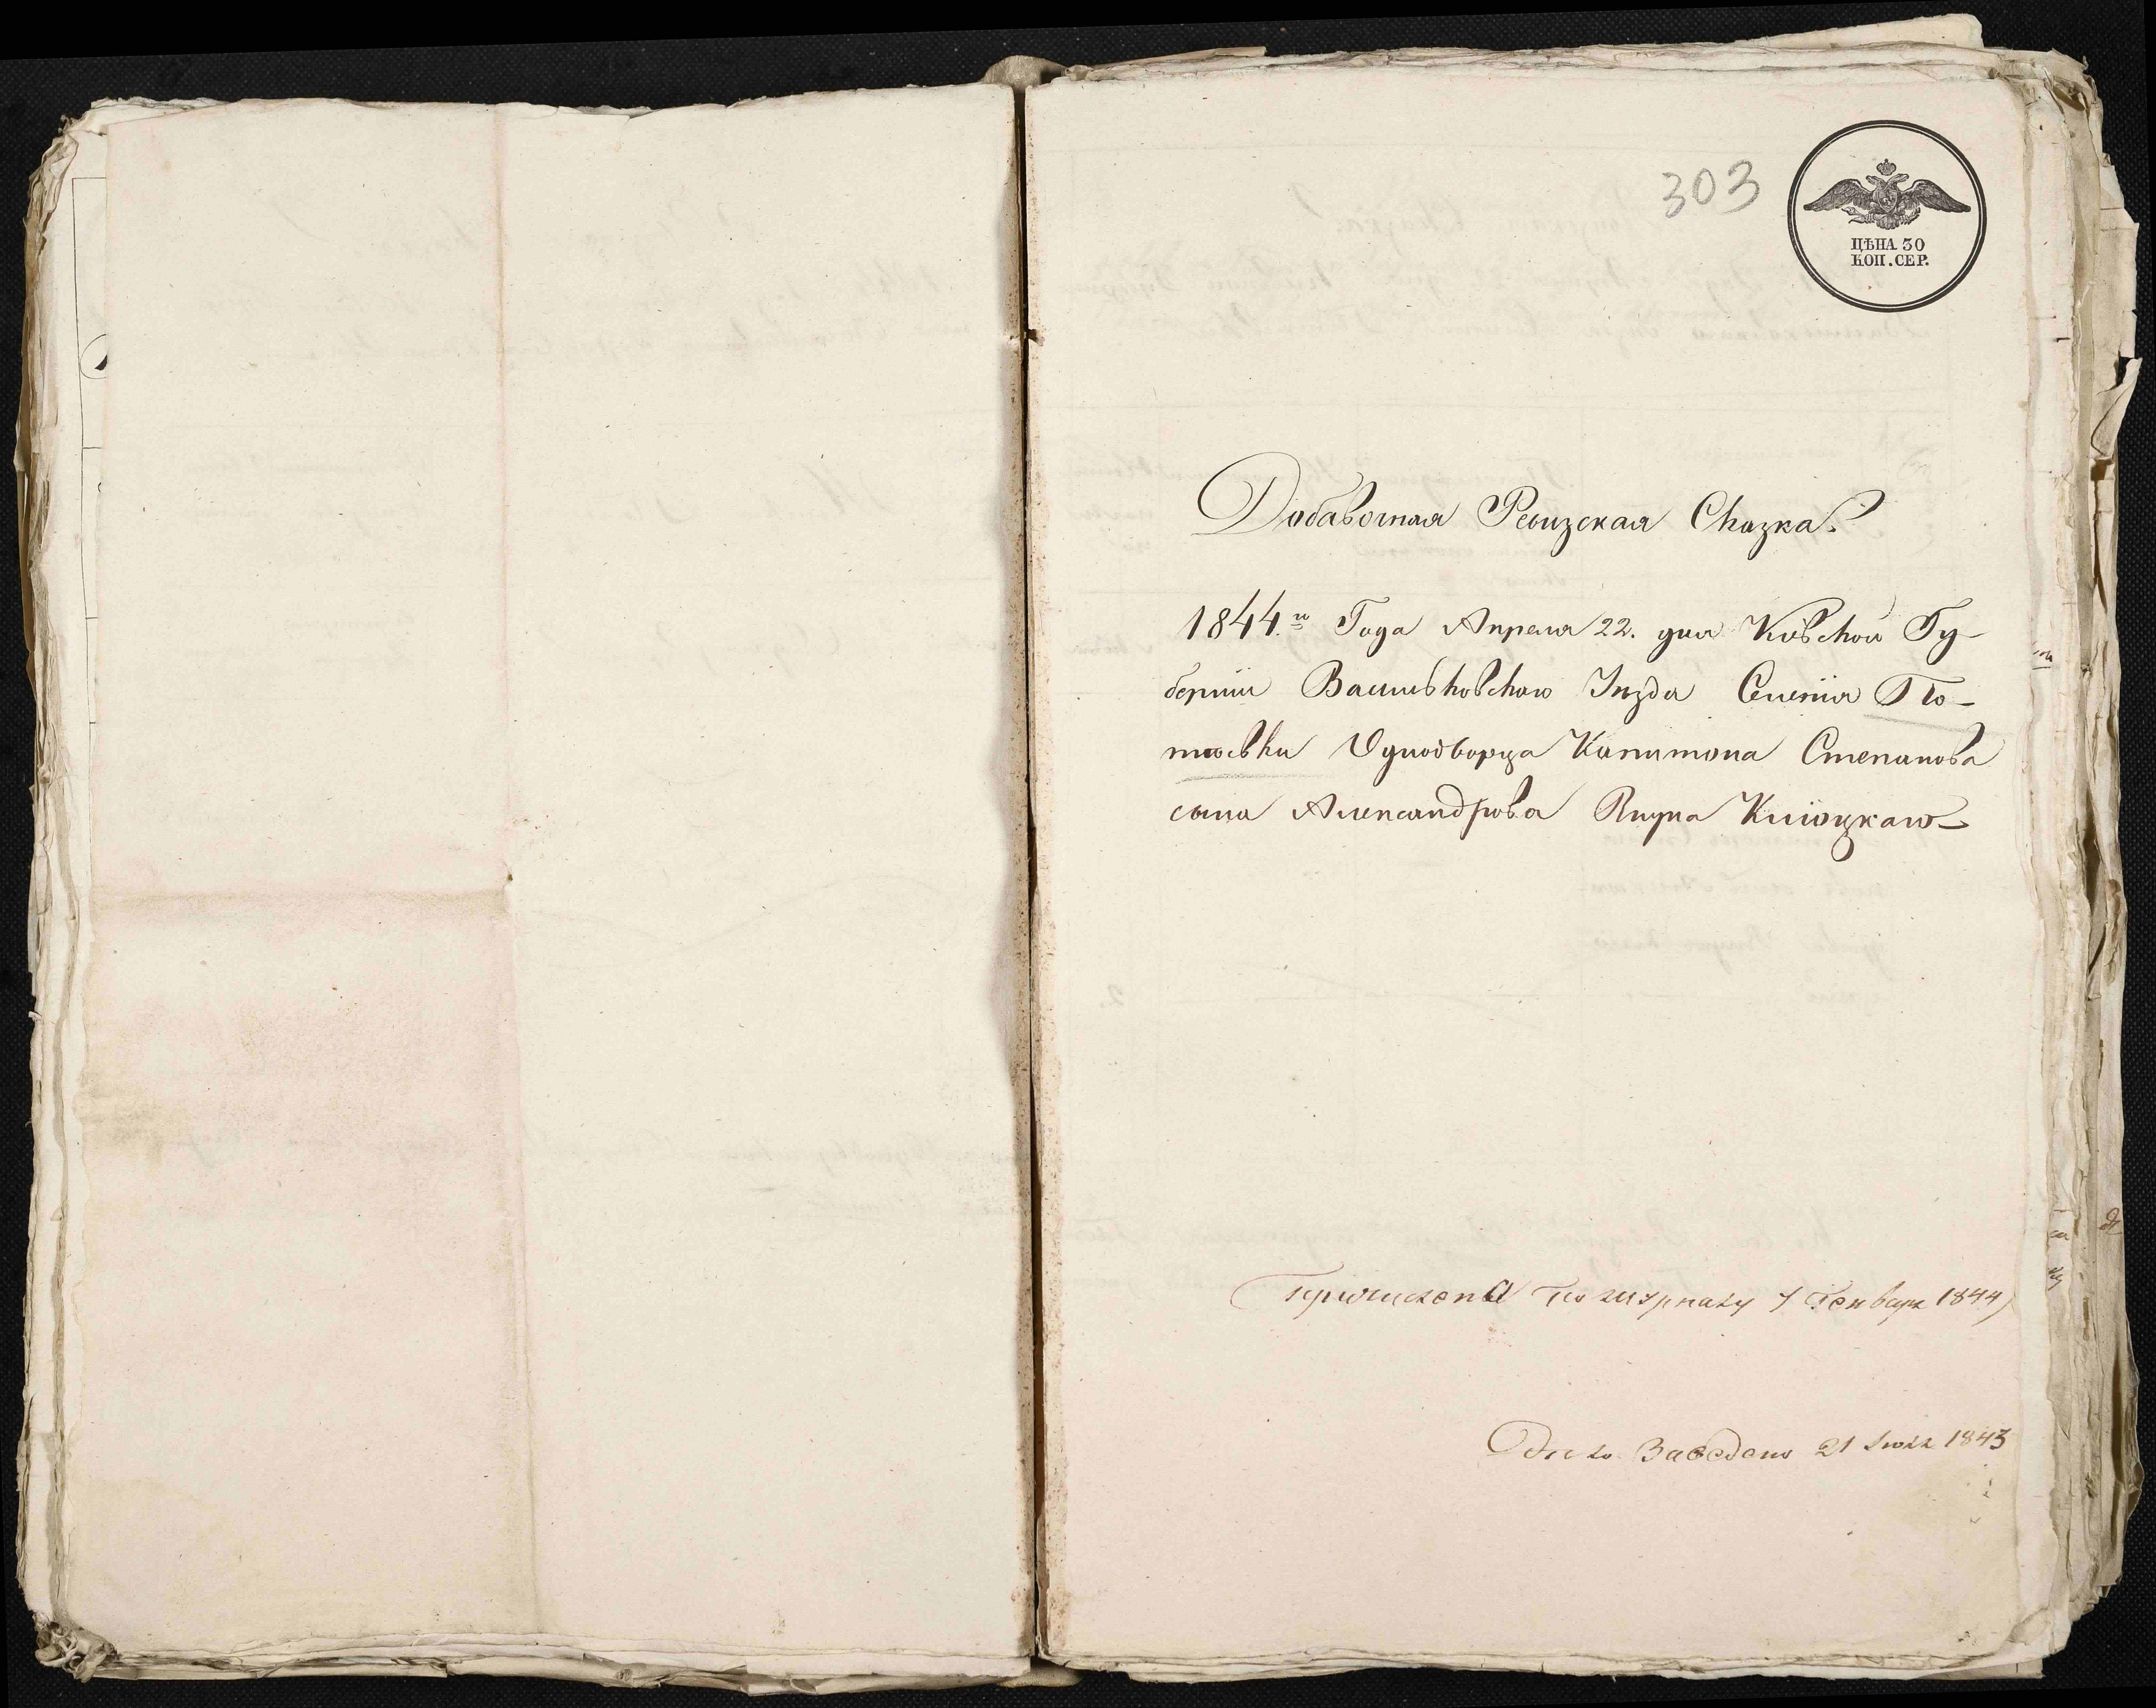 303
ЦѢНА 30
КОП. СЕР.
Добавочная Ревизская Сказка.
1844.го Года Апреля 22. дня Кіевской Гу-
берніи Васильковскаго Уѣзда Селенія По-
Однодворца Капитона Степанова
сына Александрова Внука
Причислена По журналу 7 Генваря 1844
Дѣло Заведено 21 Іюля 1843